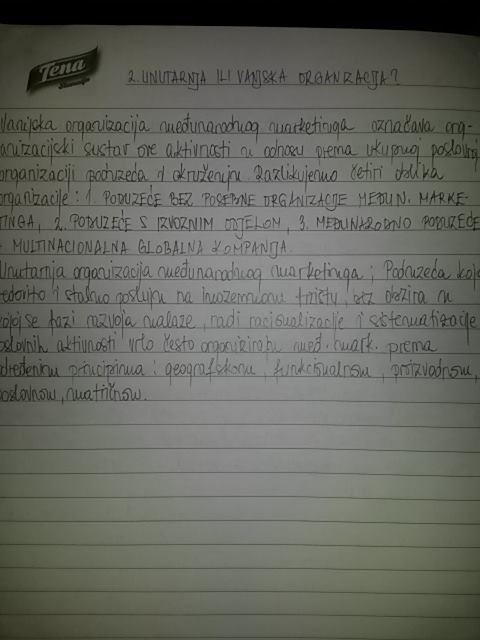 Tena
2. UNUTARNJA ILI VANJSKA ORGANIZACIJA?
Vanjska organizacija međunarodnog marketinga označava org-
anizacijski sustav ove aktivnosti u odnosu prema ukupnoj poslovnoj
organizaciji poduzeća i okruženju. Razlikujemo četiri oblika
organizacije: 1. PODUZEĆE BEZ POSEBNE ORGANIZACIJE MEĐUN. MARKE-
TINGA, 2. PODUZEĆE S IZVOZNIM ODJELOM, 3. MEĐUNARODNO PODUZEĆE
MULTINACIONALNA GLOBALNA KOMPANIJA.
Unutarnja organizacija međunarodnog marketinga; Poduzeća koja
redovito i stalno posluju na inozemnom tržištu, bez obzira u
kojoj se fazi razvoja nalaze, radi racionalizacije i sistematizacije
poslovnih aktivnosti vrlo često organiziraju međ. mark. prema
određenim principima: geografskom, funkcionalnom, proizvodnom,
poslovnom, matričnom.